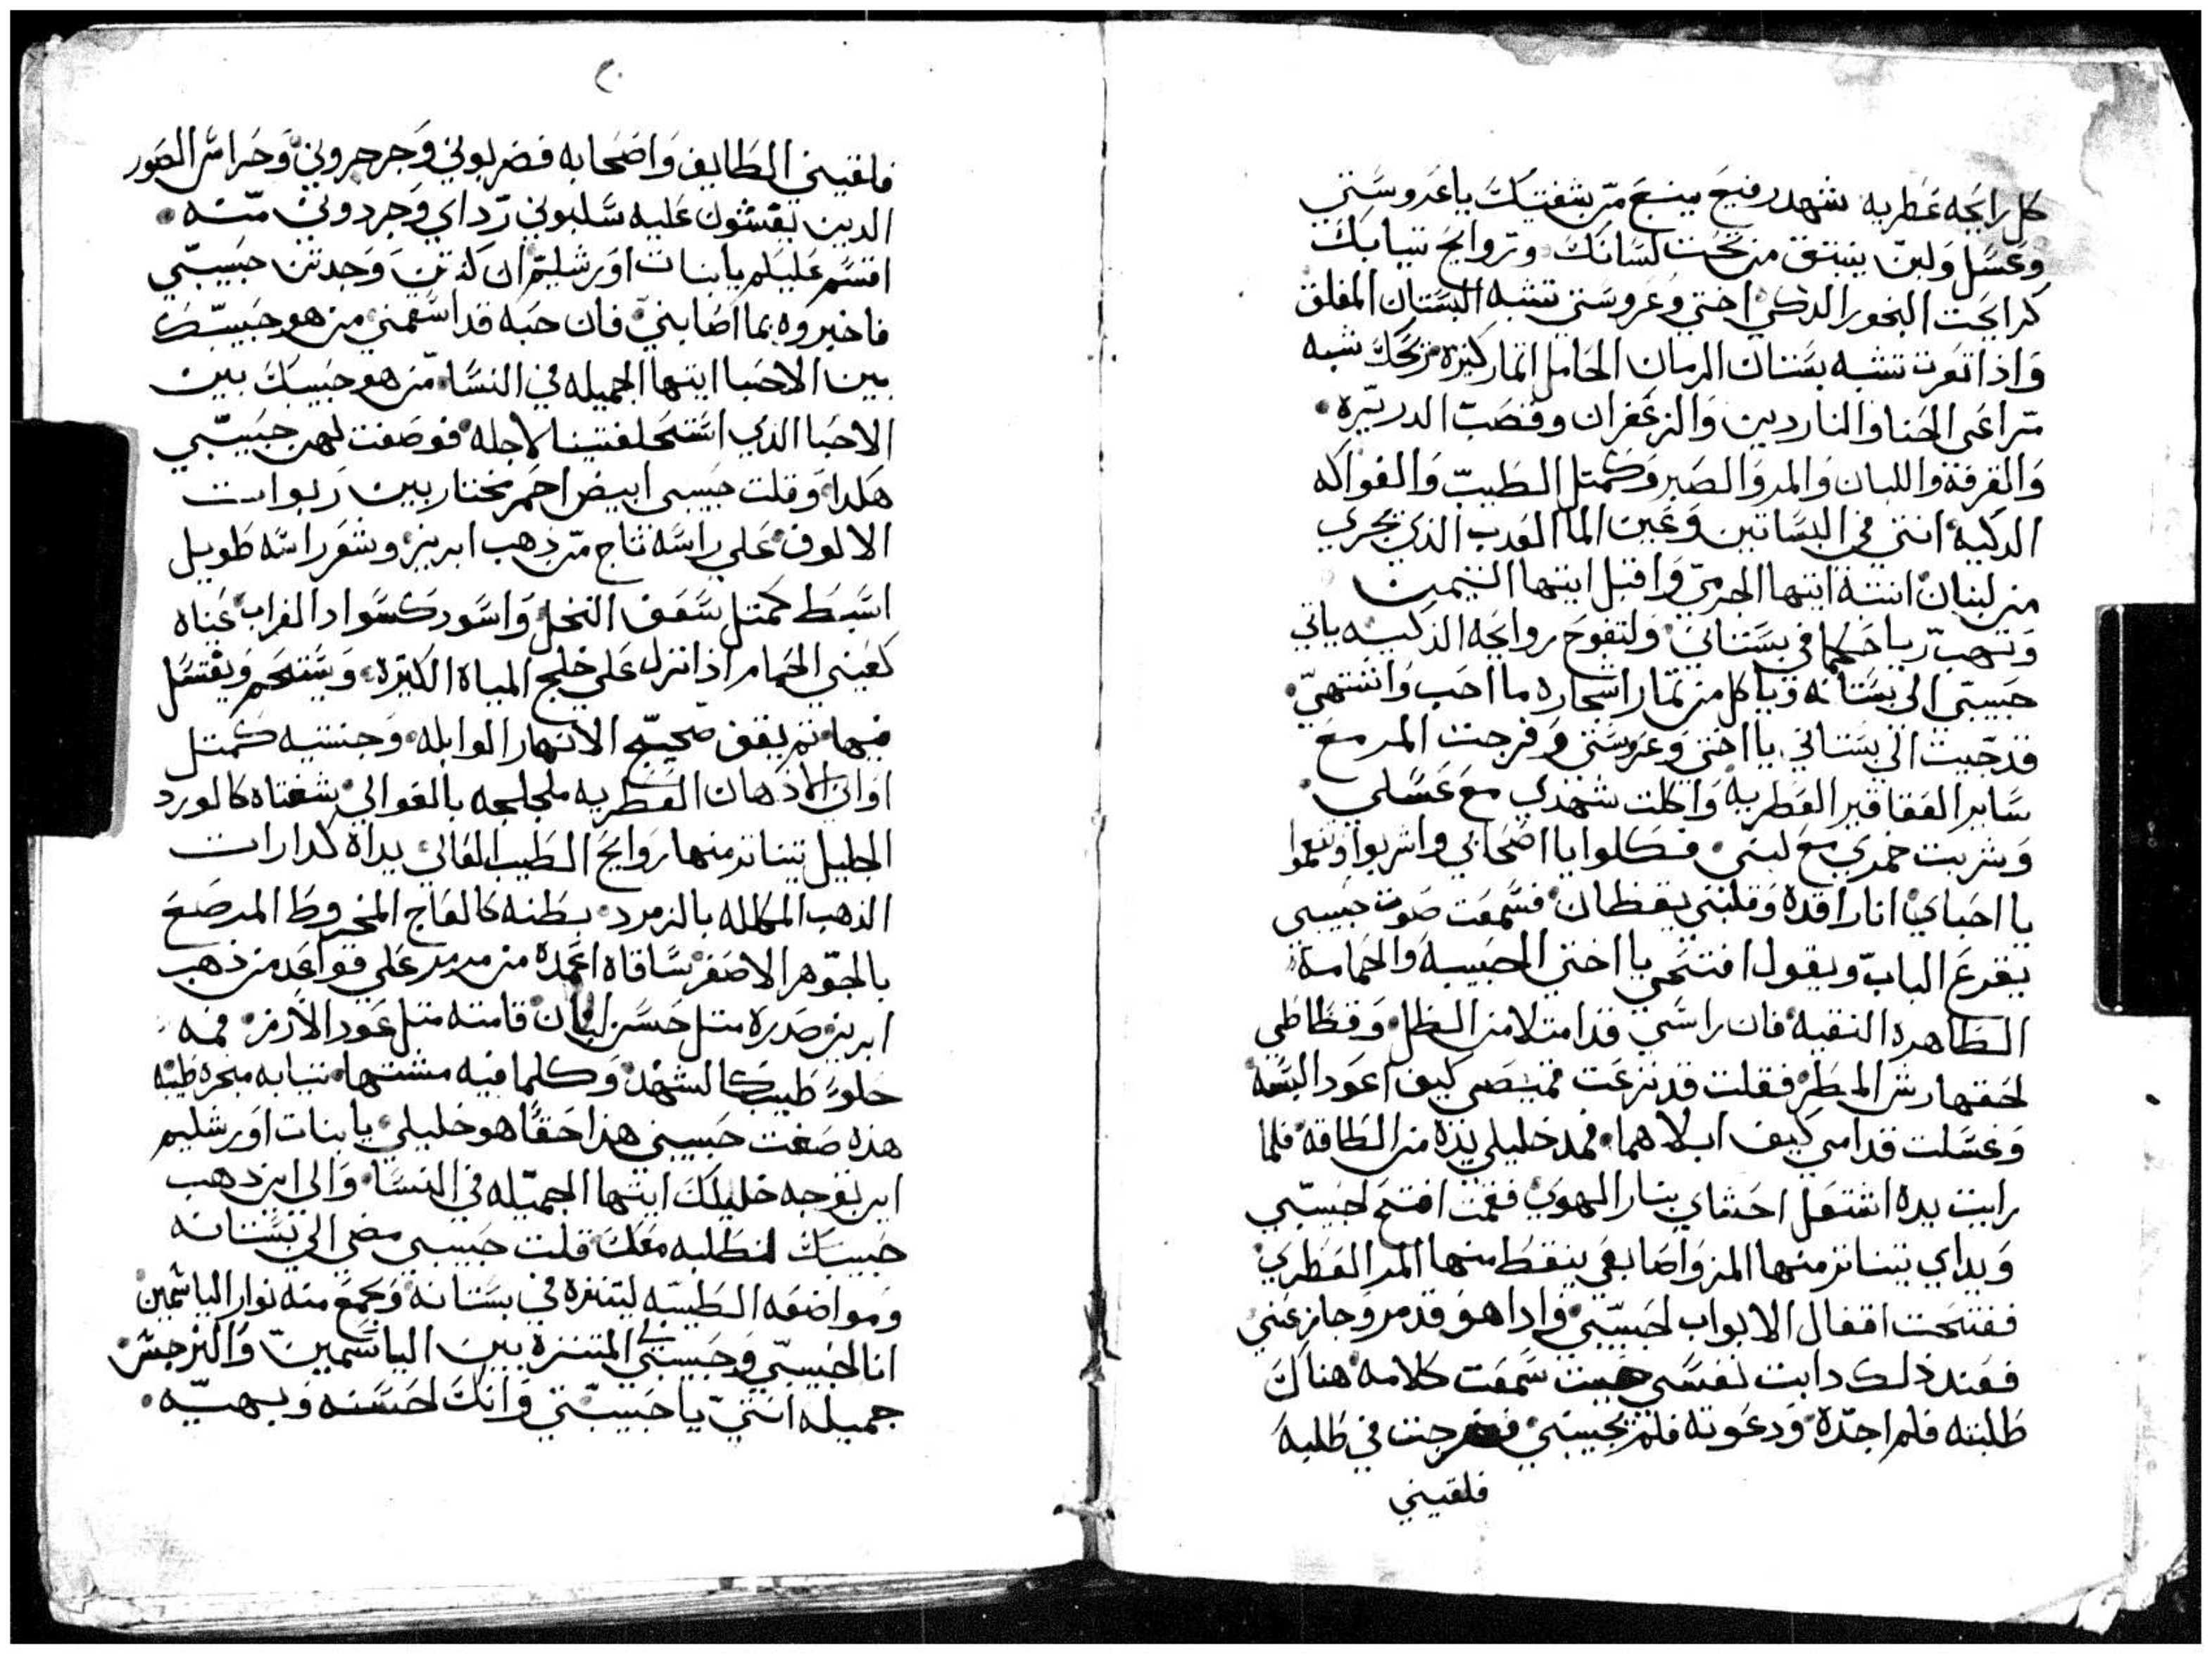 كل رايحه عطريه شهد رفيع ينبع من شفتيك يا عروستي
وعسل ولبن ينبتق من تحت لسانك وتروايح تيابك
كرايحت البخور الدكي اختي وعروستي تشبه البستان المغلق
واذا تعرت تشبه بستان الرمان الحامل اتمار كتيره تركك شبه
مراعي الحنا والناردين والزعفران وقصب الدريره
والقرفة واللبان والمر والصبر وكمتل الطيب والفواكه
الدكيه انتي في البساتين وعين الما العدب الذي يجري
من لبنان انتبه ايتها الجرمي واقبل ايتها التيمن
وتهب رياحكما في بستاني ولتفوح روايحه الذكيه ياتي
حبيبي الى بستانه وياكل من تمار اشجاره ما احب واشتهي
قد جيت الي بستاني يا اختي وعروستي وفرجت المر مع
ساير العقاقير العطرية واكلت شهدي مع عسلي
وشربت خمري مع لبني فكلوا يا اصحابي واشربوا وتنعموا
يا احباي انا راقده وقلبتي يقظان فسمعت صوت حبيبي
يقرع الباب ويقول افتحي يا اختي الحبيبه والحمامة
الطاهره النقيه فان راسي قد امتلا من الطل وقطاطي
لحقها رش المطر فقلت قد نزعت قميصي كيف اعود البسه
وغسلت قدامي كيف ابلاهما فمد خليلي يده من الطاقة فلما
رايت يده اشتعل احشاي بنار الهوي فقمت افتح لحبيبي
ويداي يتناتر منها المر واصابعي ينقط منها المر العطري
ففتحت اقفال الابواب لحبيبي وادا هو قد مر وجاز عني
فعند ذلك دابت نفسي حيت سمعت كلامه هناك
طلبته فلم اجده ودعوته فلم يجيبني فخرجت في طلبه
فلقيني
فلقيني الطايف واصحابه فضربوني وجرجروني وحراس الصور
الدين يفتشون عليه سلبوني رداي وجردوني منه
اقسم عليلم يا بنات اورشليم ان كنتن وجدتن حبيبي
فاخبروه بما اصابني فان حبه قد اسقمني من هو حبيبك
بين الاحبا ايتها الجميله في النسا من هو حبيبك بين
الاحبا الذي استحلفتينا لاجله فوصفت لهن حبيبي
هكدا وقلت حبيبي ابيض احمر مختار بين ربوات
الالوف علي راسه تاج من ذهب ابريز وشعر راسه طويل
اسبط كمتل سعف النخل واسود كسواد الغراب عيناه
كعيني الحمام اذا نزل علي خليج المياه الكتيره ويستحم ويغتسل
فيها تم يقف صحيح الانهار الوابله وجنتيه كمتل
اواني الادهان العطريه ملجلجه بالغوالي شفتاه كالورد
الجليل تتناتر منها روايح الطيب الغالي يداه كدارات
الذهب المكلله بالزمرد بطنه كالعاج المخروط المرصع
بالجوهر الاصفر ساقاه اعمده من مرمر علي قواعد من ذهب
ابريز صدره متل حسن لبنان قامته متل عود الارز فمه
حلو طيب كالشهد وكلما فيه مشتها تيابه مبخره طيبه
هذه صفت حبيبي هذا حقا هو خليلي يا بنات اورشليم
اين توجه خليلك ايتها الجميله في النسا والي اين ذهب
حبيبك لنطلبه معك قلت حبيبي مضي الي بستانه
ومواضعه الطيبه ليتنزه في بستانه ويجمع منه نوار الياسمين
انا لحبيبي وحبيبي لي المتنزه بين الياسمين والنرجس
جميله انتي يا حبيبتي وانك لحسنه وبهيه